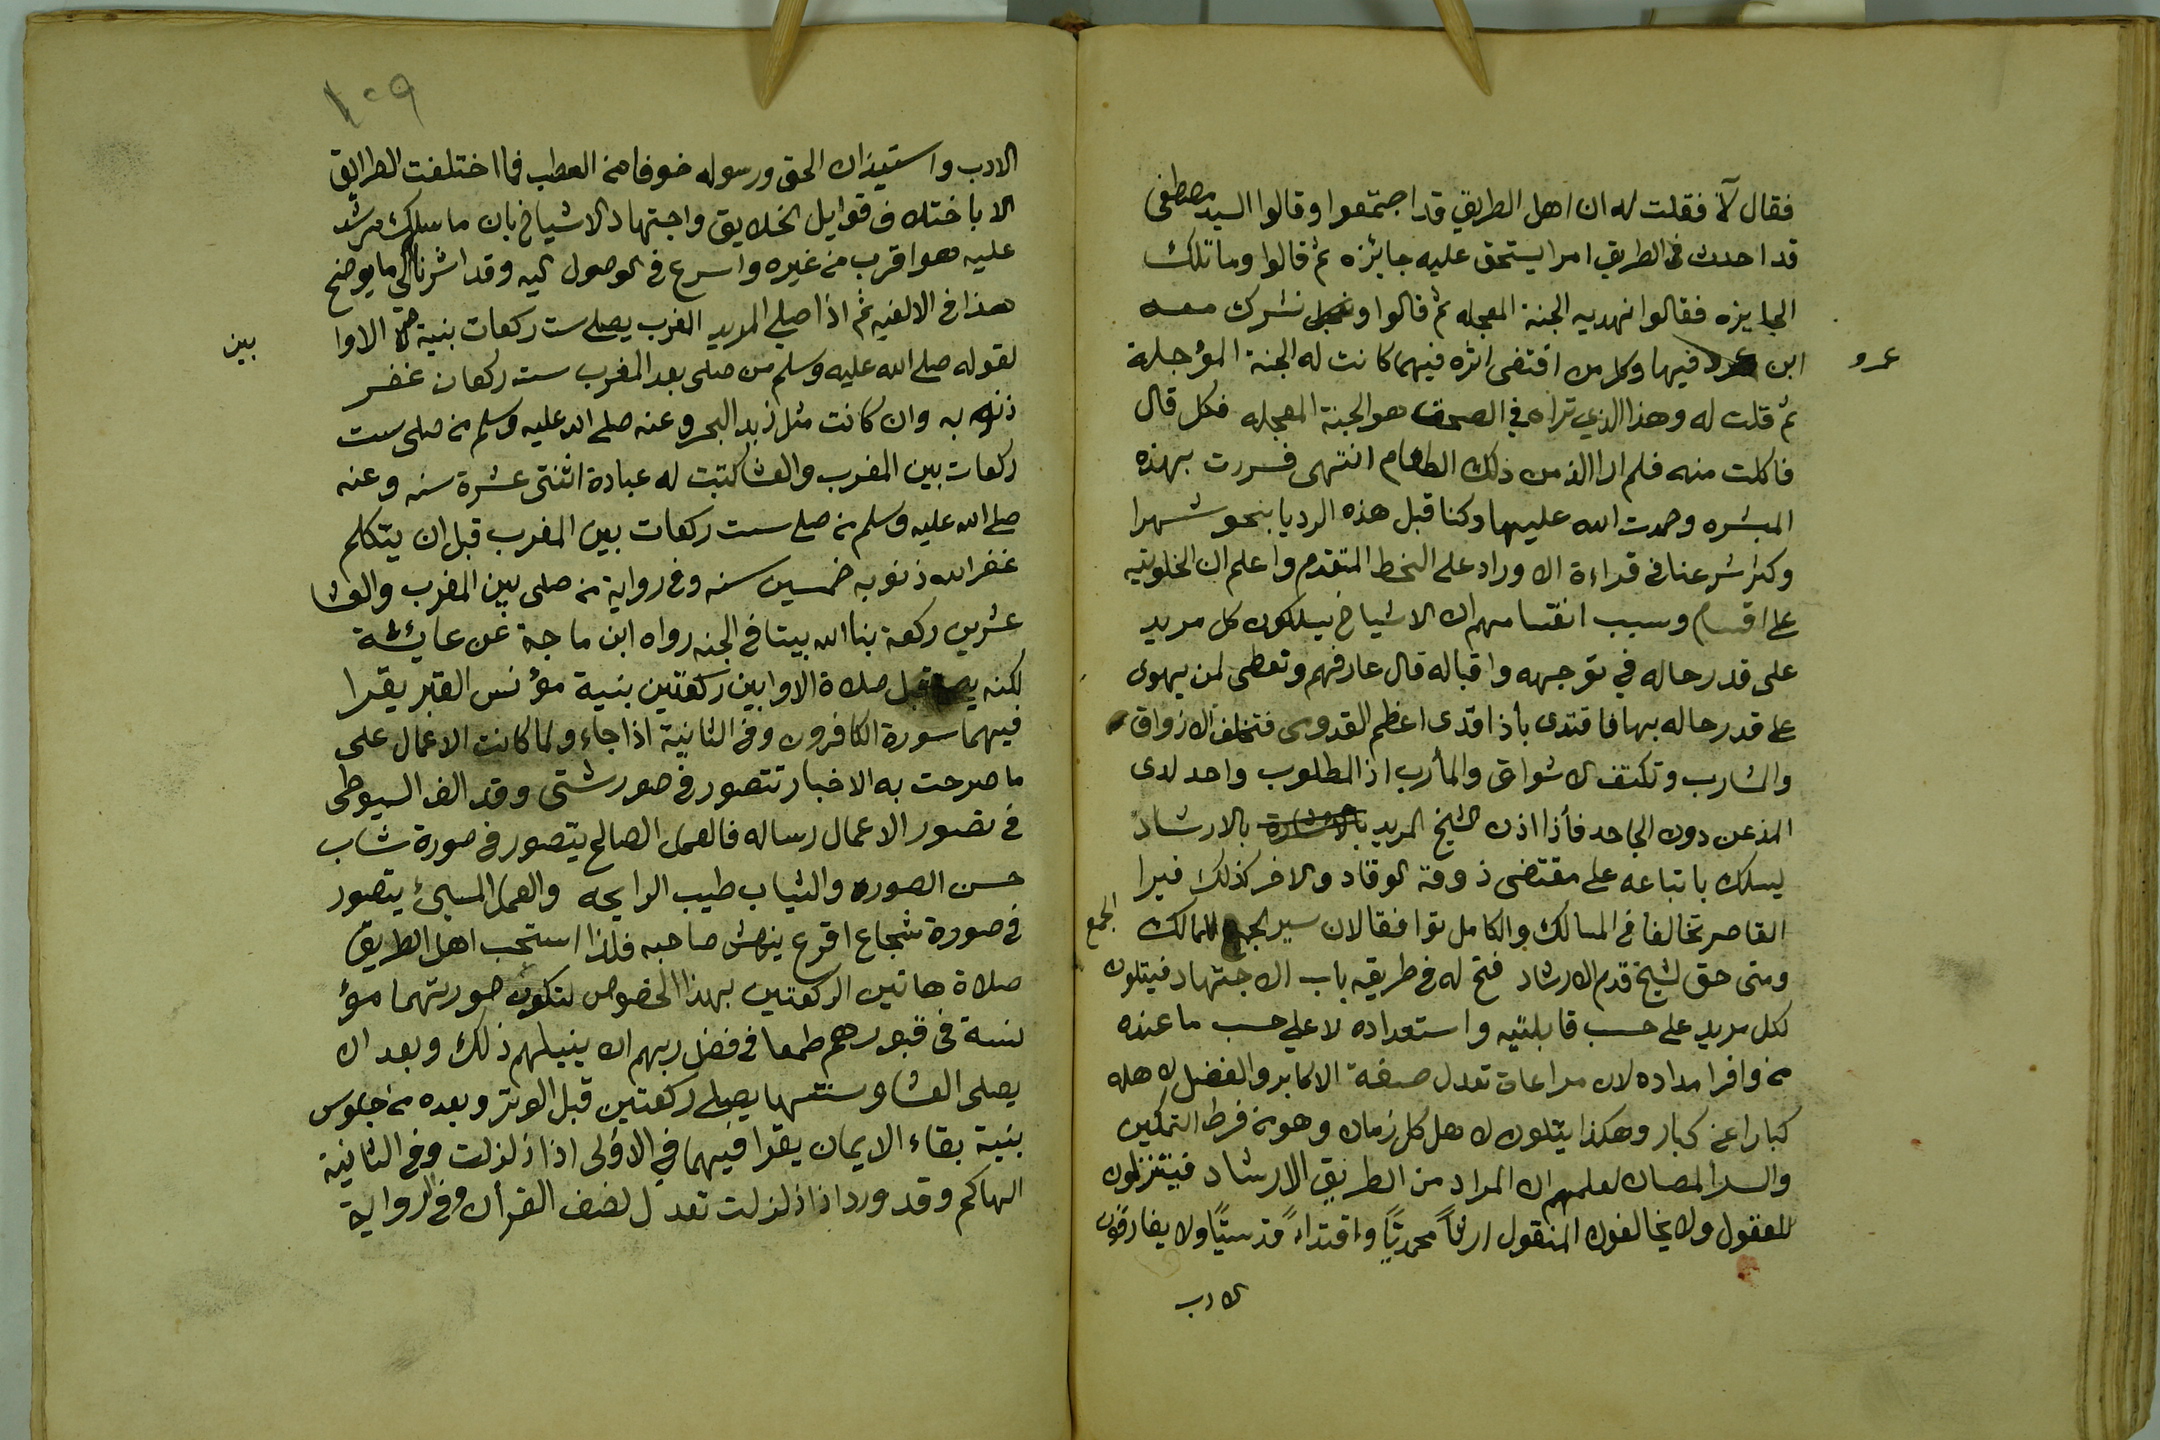 فقال لا فقلت له ان اهل الطريق قد اجتمعوا وقالوا السيد مصطفى
قد احدث في الطريق امرا يستحق عليه جايزه ثم قالوا وما تلك
الجايزه فقالوا نهديه الجنة المعجله ثم قالوا ونشرك معه
ابن فيها وكل من اقتفى اثره فيهما كانت له الجنة المؤجلة
عمرو
ثم قلت له وهذا الذي تراه في الصحف هو الجنة المعجله فكل قال
فاكلت منه فلم ار الذ من ذلك الطعام انتهى فسررت بهذه
المبشره وحمدت الله عليها وكنا قبل هذه الرديا بنحو شهرا
وكثر شرعنا في قراءة الاوراد على النخط المتقدم واعلم ان الخلوتيه
على اقسام وسبب انقسامهم ان الاشياخ يسلكون كل مريد
على قدر حاله في توجهه واقباله قال عارفهم وتعطى لمن يهوى
على قدر حاله بها فاقتدى بأذا قدى اعظم القدوى فتختلف الاذواق
والمشارب وتكتنف الاشواق والمأرب اذ المطلوب واحد لدى
المذعن دون الجاحد فأذا اذن الشيخ المريد بالاشارة بالارشاد
ليسلك باتباعه على مقتضى ذوقه الوقاد والاخر كذلك فيرا
القاصر تخالفا في المسالك والكامل توافقا لان سير الممالك
الجمع
ومتى حق لشيخ قدم الارشاد فتح له في طريقه باب الاجتهاد فيتلون
لكل مريد على حسب قابلتيه واستعداده لا على حسب ما عنده
من وافر امداده لان مراعات تعدل صنعة الاكابر والفضل لاهله
كبارا عن كبار وهكذا يتلون لاهل كل زمان وهو من فرط التمكين
والسر المصان لعلمهم ان المراد من الطريق الارشاد فيتنزلون
للعقول ولا يخالفون المنقول ارثاً محمديًا واقتداءً قدسيًا ولا يفارقون
الادب
١٠٩
الادب واستيذان الحق ورسوله خوفا من العطب فما اختلفت الطرايق
الا باختلاف قوايل الخلايق واجتهاد الاشياخ بان ما سلك مرشد
عليه هو اقرب من غيره واسرع في الوصول اليه وقد اشرنا الى ما يوضح
هذا في الالفيه ثم اذا صلى المريد المغرب يصلى ست ركعات بنية صلاة الاوا
بين
لقوله صلى الله عليه وسلم من صلى بعد المغرب ست ركعات غفر
ذنوبه وان كانت مثل زبد البحر وعنه صلى الله عليه وسلم من صلى ست
ركعات بين المغرب والعشا كتبت له عبادة اثنتى عشرة سنه وعنه
صلى الله عليه وسلم من صلى ست ركعات بين المغرب قبل ان يتكلم
غفر الله ذنوبه خمسين سنه وفي رواية من صلى بين المغرب والعشا
عشرين ركعة بنا الله بيتا في الجنه رواه ابن ماجة عن عايئشة
لكنه قبل صلاة الاوابين ركعتين بنية مؤنس القبر يقرا
فيهما سورة الكافرون وفي الثانية اذا جاء ولما كانت الاعمال على
ما صرحت به الاخبار تتصور في صور شتى وقد الف السيوطى
في تصور الاعمال رساله فالعمل الصالح يتصور في صورة شاب
حسن الصوره والثياب طيب الرايحه والعمل المسئ يتصور
في صورة شجاع اقرع ينهش صاحبه فلذا استحب اهل الطريق
صلاة هاتين الركعتين بهذا الخصوص لتكون صورتهما مؤ
نسة في قبورهم طمعا في فضل ربهم ان ينيلهم ذلك وبعد ان
يصلى العشا وسنتها يصلى ركعتين قبل الوتر وبعده من جلوس
بنية بقاء الايمان يقرا فيهما في الاولى اذا زلزلت وفي الثانية
الهاكم وقد ورد اذا زلزلت تعدل نصف القرأن وفي الرواية